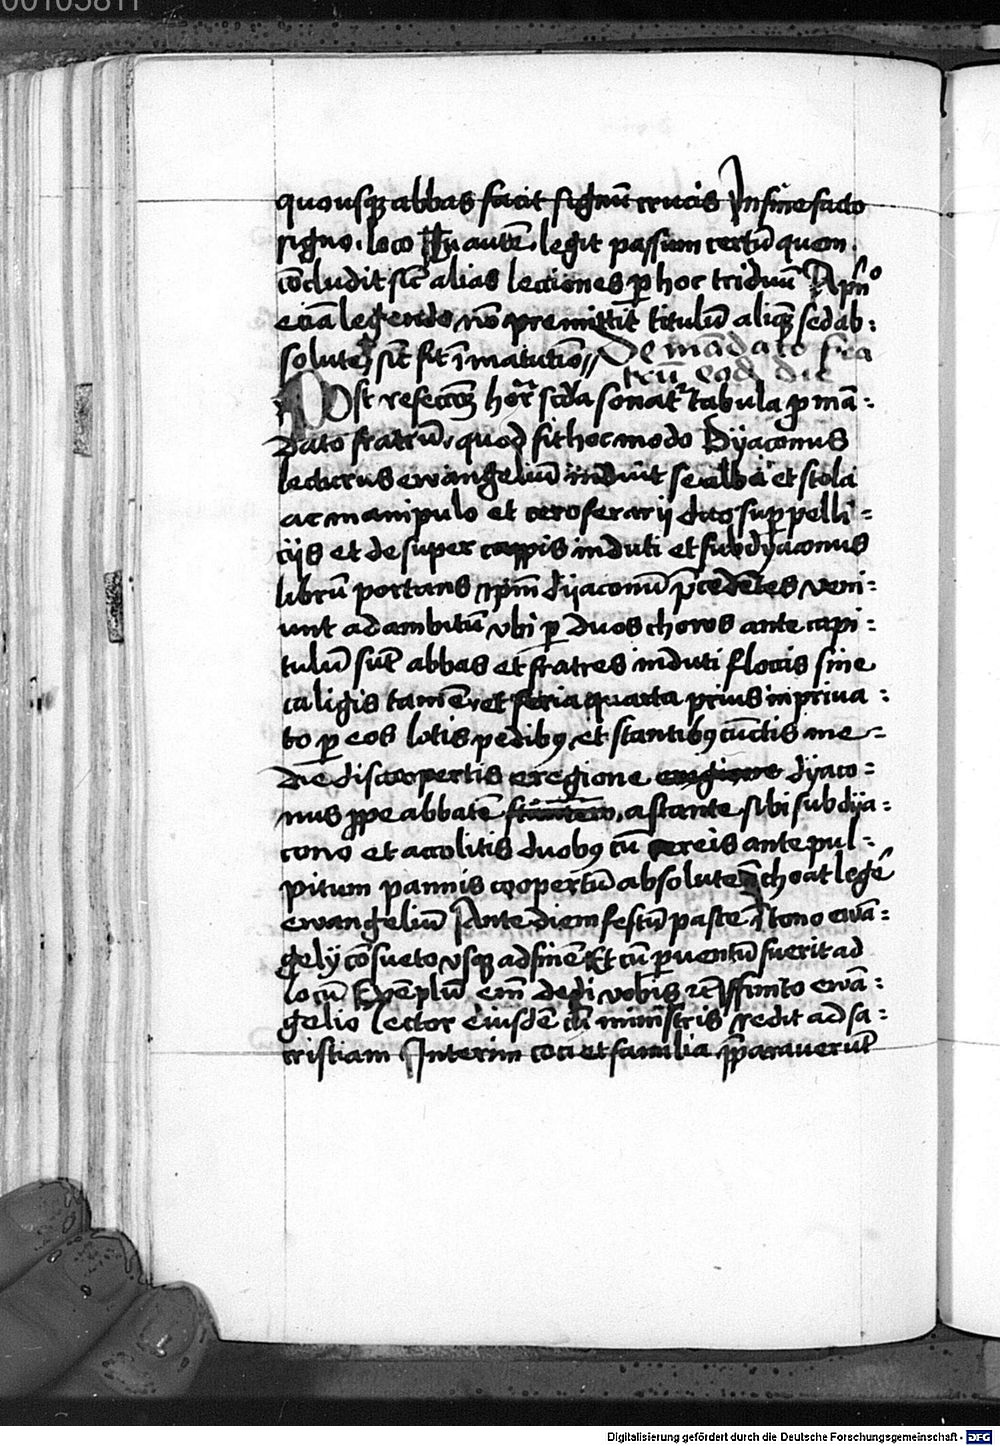 quousq abbas facit signū crucis In fine facto
signo. loco Tu autē. legit passum certū quem
cōcludit sic alias lectiones p hoc triduū
eciā legendo nō premittit titulū aliquē sed ab-
solute sic fit ī matutino // De mādato fra
trū eadē die
Post refeccōȝ horā scda sonatr tabula p mā-
dato fratrū. quod fit hoc modo Dyaconus
lecturus ewangeliū induit se alba et stola
ac manipulo et ceroferarij duo suppelli-
cijs et desuper cappis induti et subdyaconus
librū portans ipm dyaconū pcedentes veni-
unt ad ambitū vbi p duos choros ante capi-
tulū sūt abbas et fratres induti floccis sine
caligis tamē. et feria quarta prius in priua-
to p eos lotis pedibꝰ et stantibꝰ cūctis me-
die discoopertis e regione dyaco-
nus ppe abbatē astante sibi subdya-
cono et accolitis duobꝰ cū cereis ante pul-
pitum pannis coopertū absolute īchoat legē
ewangeliū Ante diem festū pasce ī tono ewā-
gely cōsueto vsq ad finē Et cū puentū fuerit ad
locū Exēplū em̄ dedi vobis Finito ewā-
gelio lector eiusdē cū ministris redit ad sa-
cristiam Interim coci et familia ppauerūt
Digitalisierung gefördert durch die Deutsche Forschungsgemeinschaft - DFG